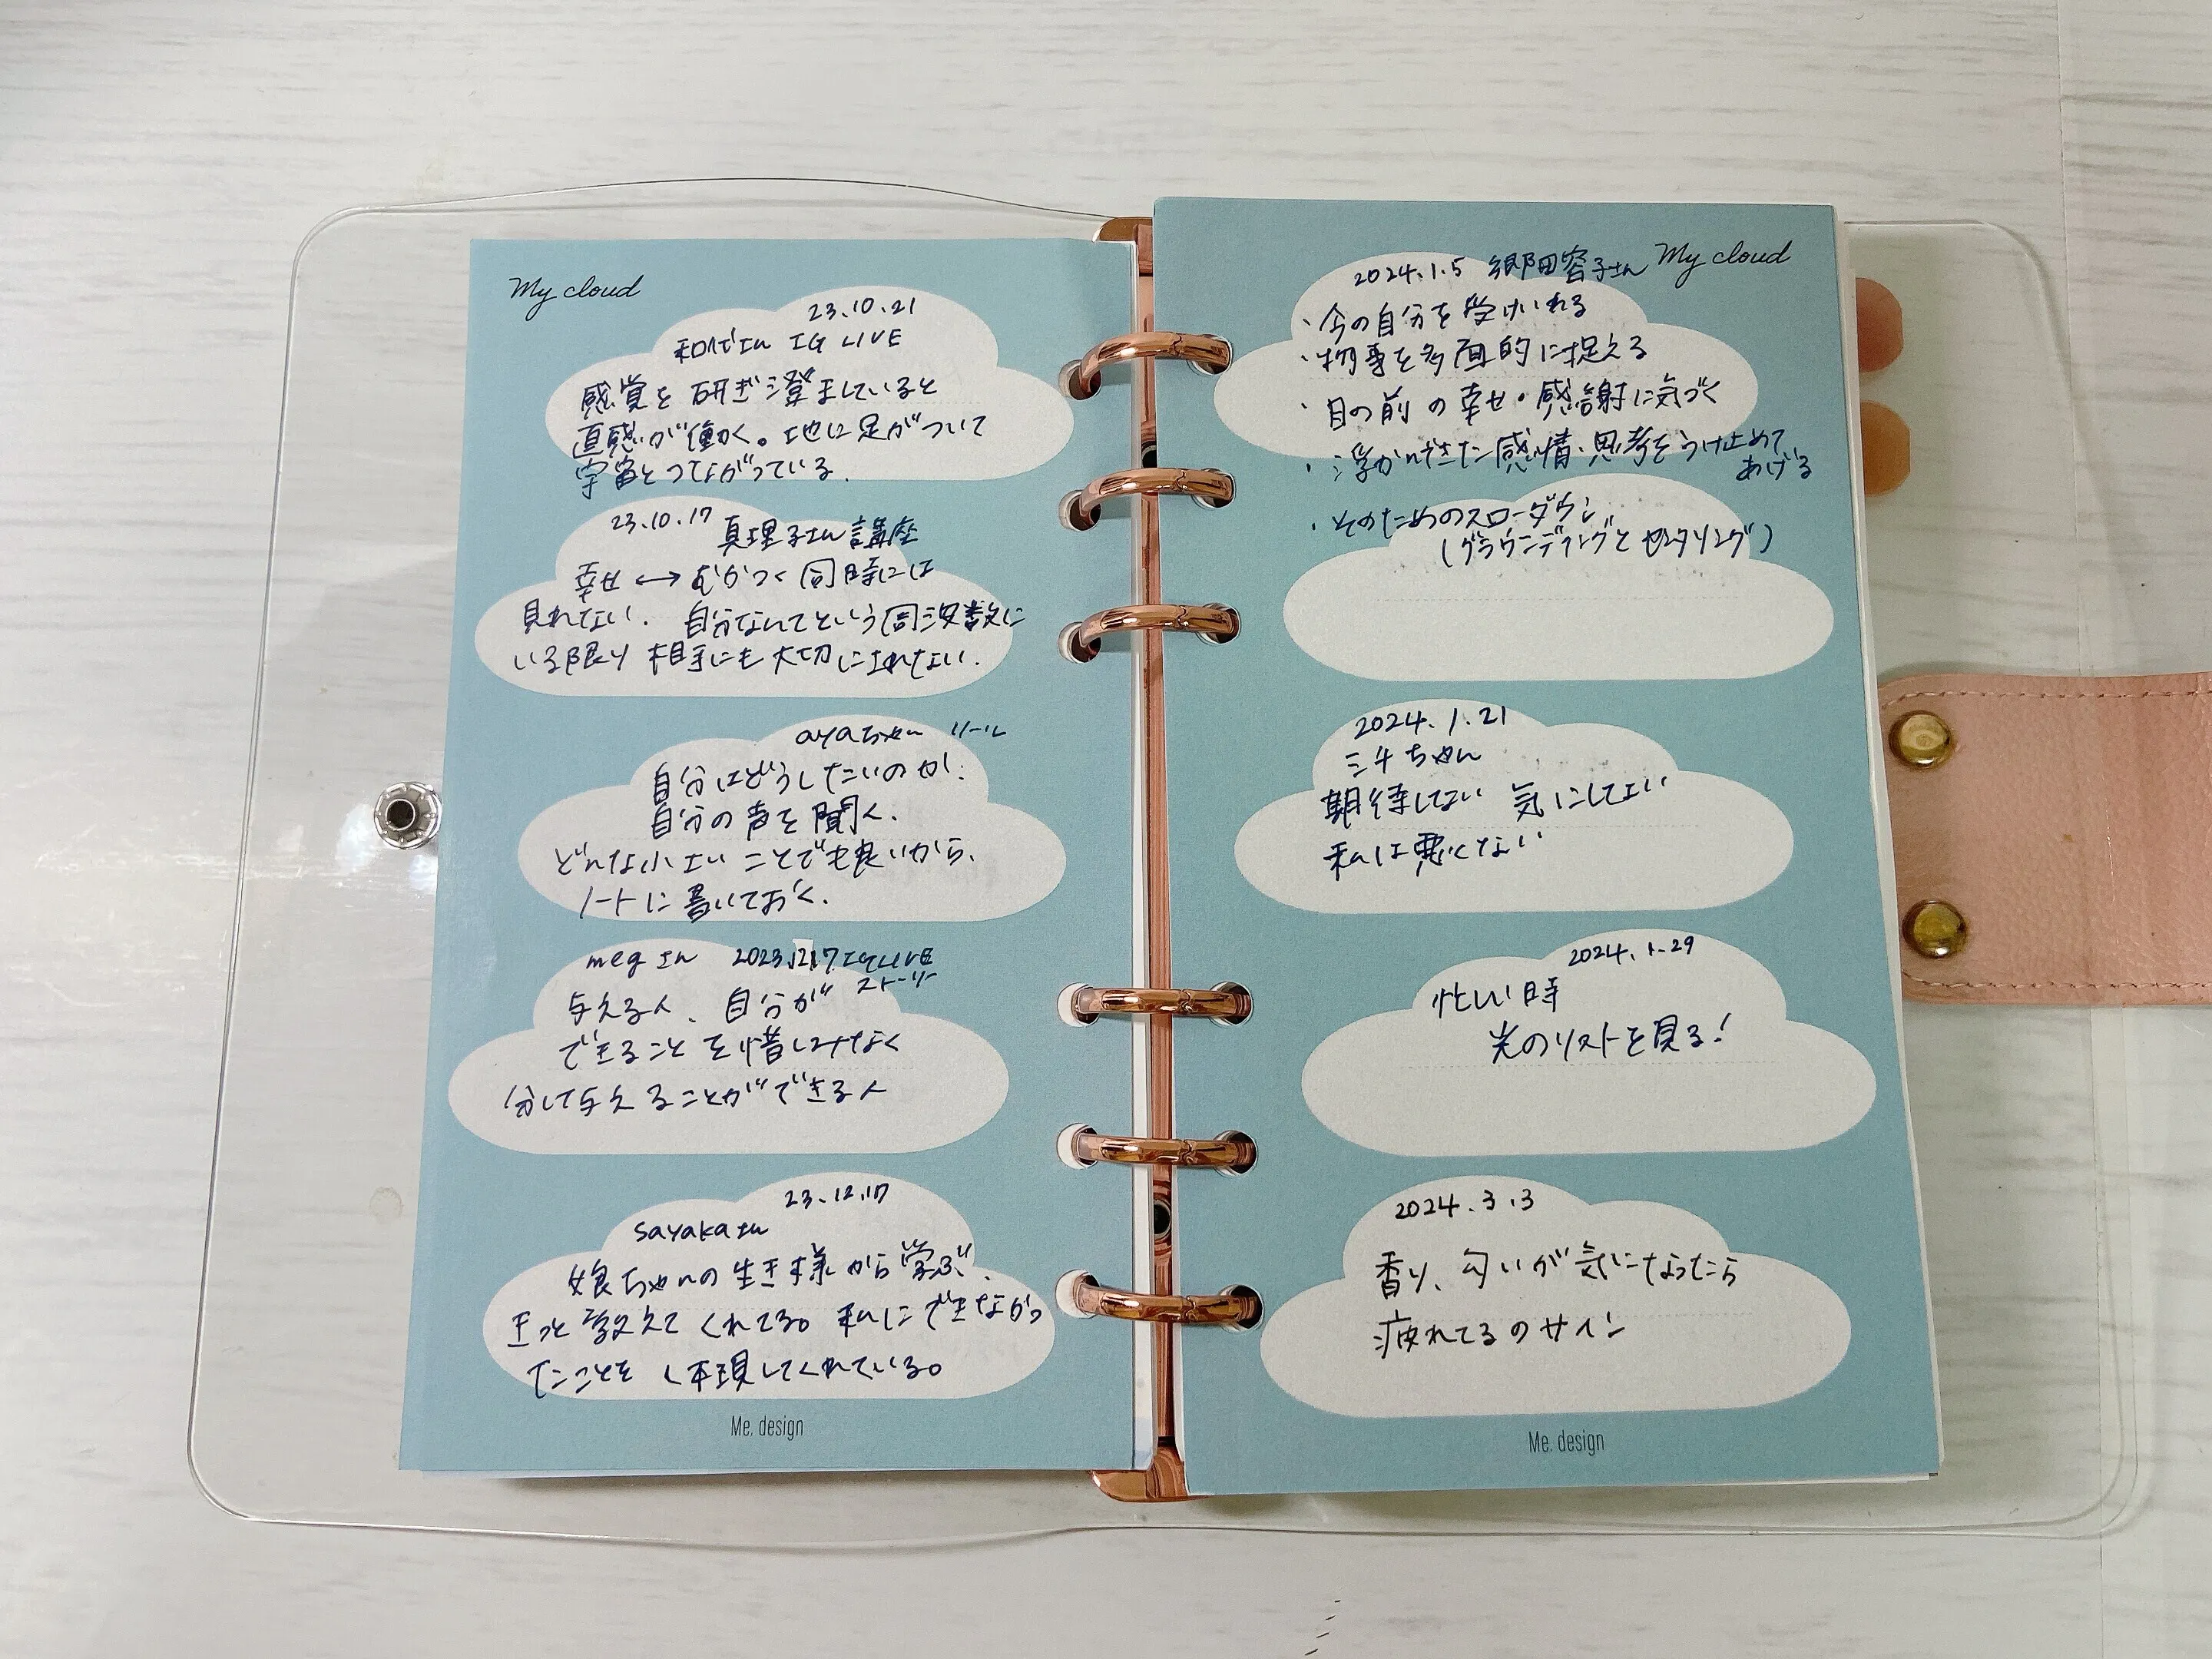 My cloud
23.10.21
さん IG LIVE
感覚を研ぎ澄ましていると
直感が働く。地に足がついて
宇宙とつながっている.
23.10.17 真理子さん講座
幸せ ↔ むかつく 同時には
見れない. 自分なんてという周波数に
いる限り 相手にも大切にされない.
ayaちゃん リール
自分はどうしたいのか.
自分の声を聞く.
どんな小さいことでも良いから、
ノートに書いておく.
megさん 2023.12.17 IG LIVE
ストーリー
与える人、自分が
できることを惜しみなく
分して与えることができる人
23.12.17
sayakaさん
娘ちゃんの生き様から学ぶ.
きっと教えてくれてる。私にできなかっ
たことを 体現してくれている。
Me. design
2024.1.5 郷田容子さん My cloud
・今の自分を受けいれる
・物事を多面的に捉える
・目の前の幸せ・感謝に気づく
・浮かんできた感情・思考をうけ止めて
あげる
・そのためのスローダウン
(グラウンディングとセンタリング)
2024.1.21
ミキちゃん
期待しない 気にしない
私は悪くない
2024.1.29
忙しい時
光のリストを見る!
2024.3.3
香り、匂いが気になったら
疲れてるのサイン
Me. design